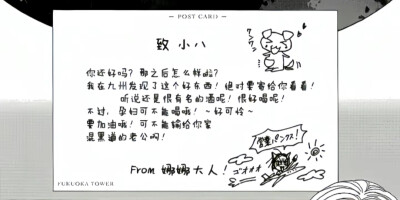 POST CARD
致 小八
クゥン
クゥン
你还好吗？那之后怎么样啦？
我在九州发现了这个好东西！绝对要寄给你看看！
听说还是很有名的酒呢！很好喝呢！
不过，孕妇可不能喝嘛！～好可怜～
要加油嘛！可不能输给你家
混黑道的老公哟！
From 娜娜大人！
ゴオオオ
FUKUOKA TOWER